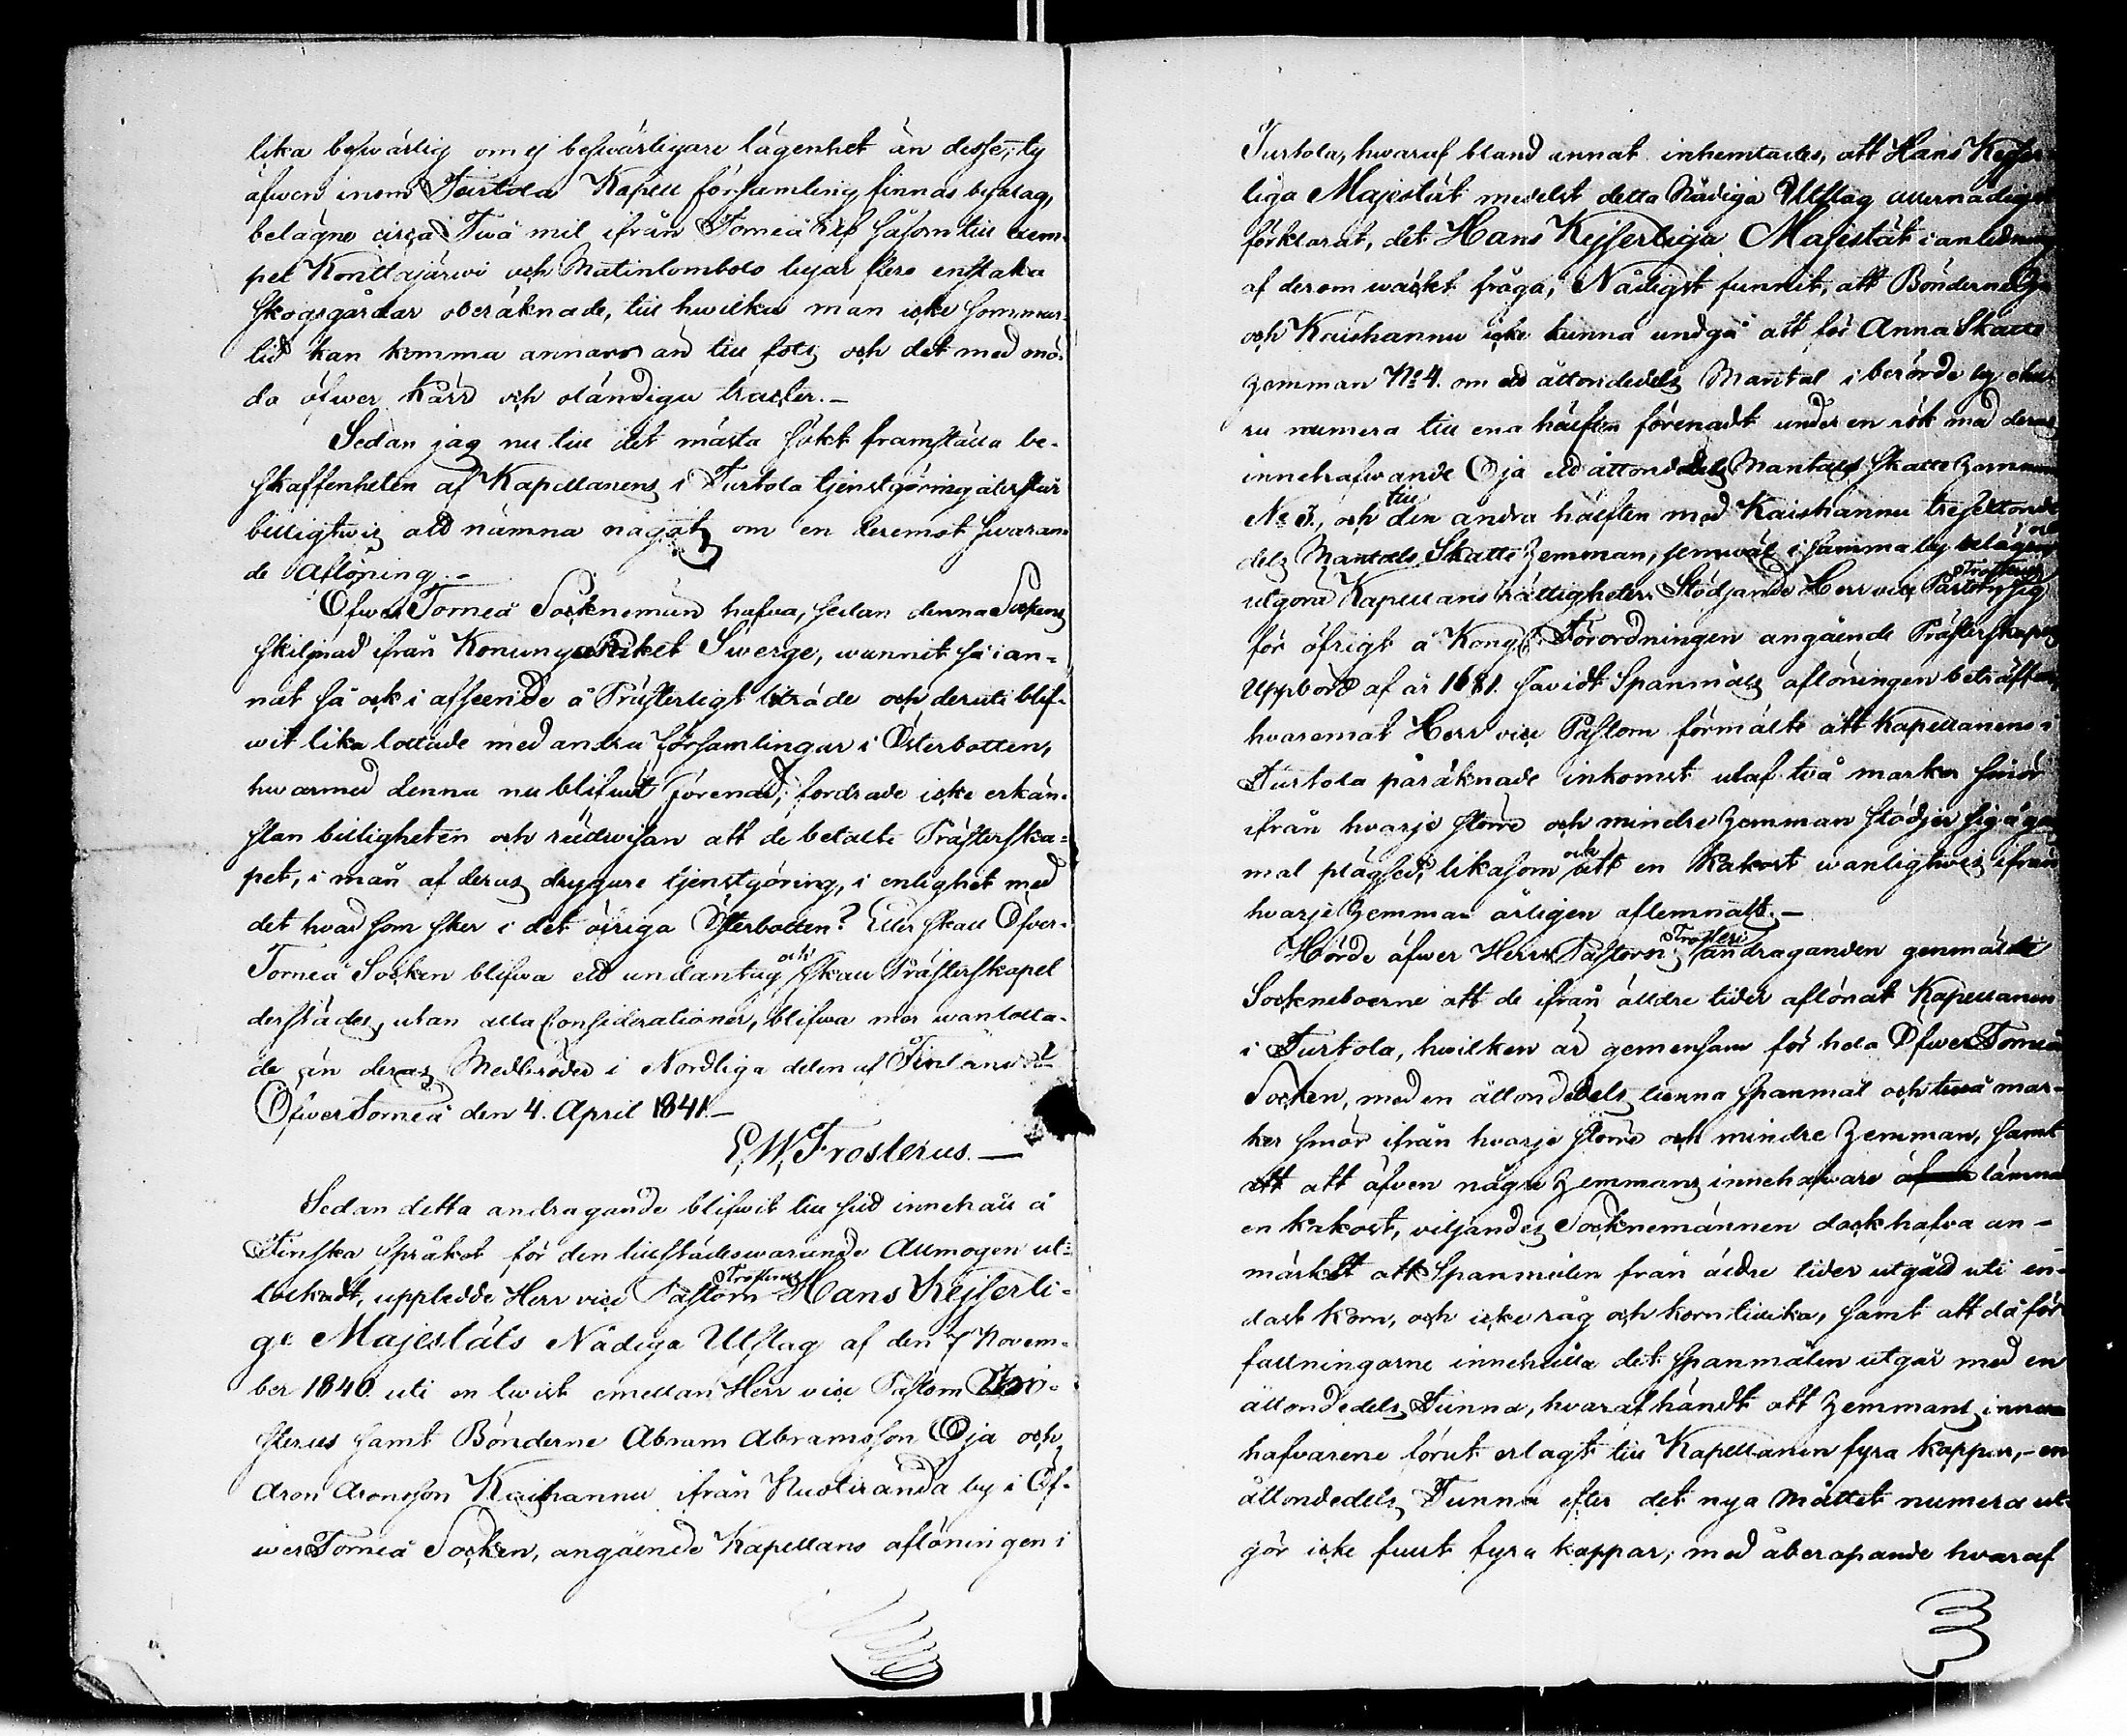 lika beswärlig om ej beswärligare lägenhet än desse, ty
äfwen inom Turtola Kapell församling finnas byalag,
belägne circa Två mil ifrån Torneå Elf såsom till exem-
pel Konttajärwi och Matinlombolo byar flere enstaka
skogsgårdar oberäknade, till hwilka man icke sommar-
tid kan komma annars än till fots och det med mö-
da öfwer kärr och oländiga trackter.-
Sedan jag nu till det mästa sökt framställa be-
skaffenheten af Kapellanens i Turtola tjenstgöring återstår
billigtwis att nämna något om en deremot swaran-
de aflöning.-
Öfwer Torneå Socknemän hafva, sedan denna Sockens
skiljnad ifrån Konunga Riket Swerge, wunnit så i an-
nat så ock i afseende å Prästerligt biträde och deruti blif-
wit lika lottade med andra församlingar i Österbotten,
hwarmed denna nu blifwit förenad; fordrade icke erkän-
slan billigheten och rättwisan att de betalte Prästerska-
pet, i mån af deras drygare tjenstgöring, i enlighet med
det hvad som sker i det öfriga Österbotten? Eller skall Öfver-
Torneå Socken blifwa ett undantag och skall Prästerskapet
derstädes, utan alla Considerationer, blifwa mer wanlotta-
de än deras Medbröder i Nordliga delen af Finland?
Öfwer Torneå den 4. April 1841.-
E. W. Frosterus.-
Sedan detta andragande blifwit till sitt innehåll å
Finska språket för den tillstädeswarande Allmogen ut-
tolkadt, uppledde Herr vice Pastorn Frosterus Hans Kejserli-
ge Majestäts Nådiga Utslag af den 7 Novem-
ber 1840. uti en twist emellan Herr vice Pastorn Fro-
sterus samt Bönderne Abram Abramsson Oja och
Aron Aronsson Kaihannu ifrån Kuoliranda by i Öf-
wer Torneå Socken, angående Kapellans aflöningen i
Turtola, hwaraf bland annat inhemtades, att Hans Kejser-
liga Majestät medelst detta Nådiga Utslag allernådigst
förklarat, det Hans Kejserliga Majestät i anledning
af derom wäckt fråga, Nådigst funnit, att Bönderne Oja
och Kaishannu icke kunna undgå att för Anna Skatte
Hemman No 4. om ett åttondedels Mantal i berörde by ehu-
ru numera till ena hälften förenadt under en rök med deras
innehafwande Oja ett åttondedels Mantals Skatte Hemman
No 3., och till den andra hälften med Kaishannu tresextonde-
dels Mantals Skatte Hemman, jemwäl i samma by belägen,
utgöra Kapellans rättigheten. Stödjande Herr vice Pastorn Frosterus sig
för öfrigt å Kongl. Förordningen angående Prästerskapets
Uppbörd af år 1681. såvidt Spanmåls aflöningen beträffar,
hvaremot Herr vice Pastorn förmälte att Kapellanens i
Turtola påräknade inkomst utaf två marker smör
ifrån hvarje större och mindre Hemman stödjer sig å gam-
mal plägsed, likasom ock att en Kakost wanligtwis ifrån
hvarje Hemman årligen aflemnats.-
Hörde öfwer Herr Pastorns Frosteri andraganden genmälde
Sockneboerne att de ifrån älldre tider aflönat Kapellanen
i Turtola, hwilken är gemensam för hela Öfwer Torneå
Socken, med en åttondedels tunna spanmål och twå mar-
ker smör ifrån hvarje större och mindre Hemman, samt
att äfven några Hemmans innehafware lämna
en kakost, viljandes Socknemännen dock hafva an-
märkt att Spanmålen från äldre tider utgått uti en-
dast korn, och icke råg och korn tillika, samt att då för-
fattningarne innehålla det spanmålen utgår med en
åttondedels Tunna, hvaraf händt att Hemmans inne-
hafvarene förut erlagt till Kapellanen fyra kappar,- en
åttondedels Tunna efter det nya måttet numera ut-
gör icke fullt fyra kappar, med åberopande hvaraf